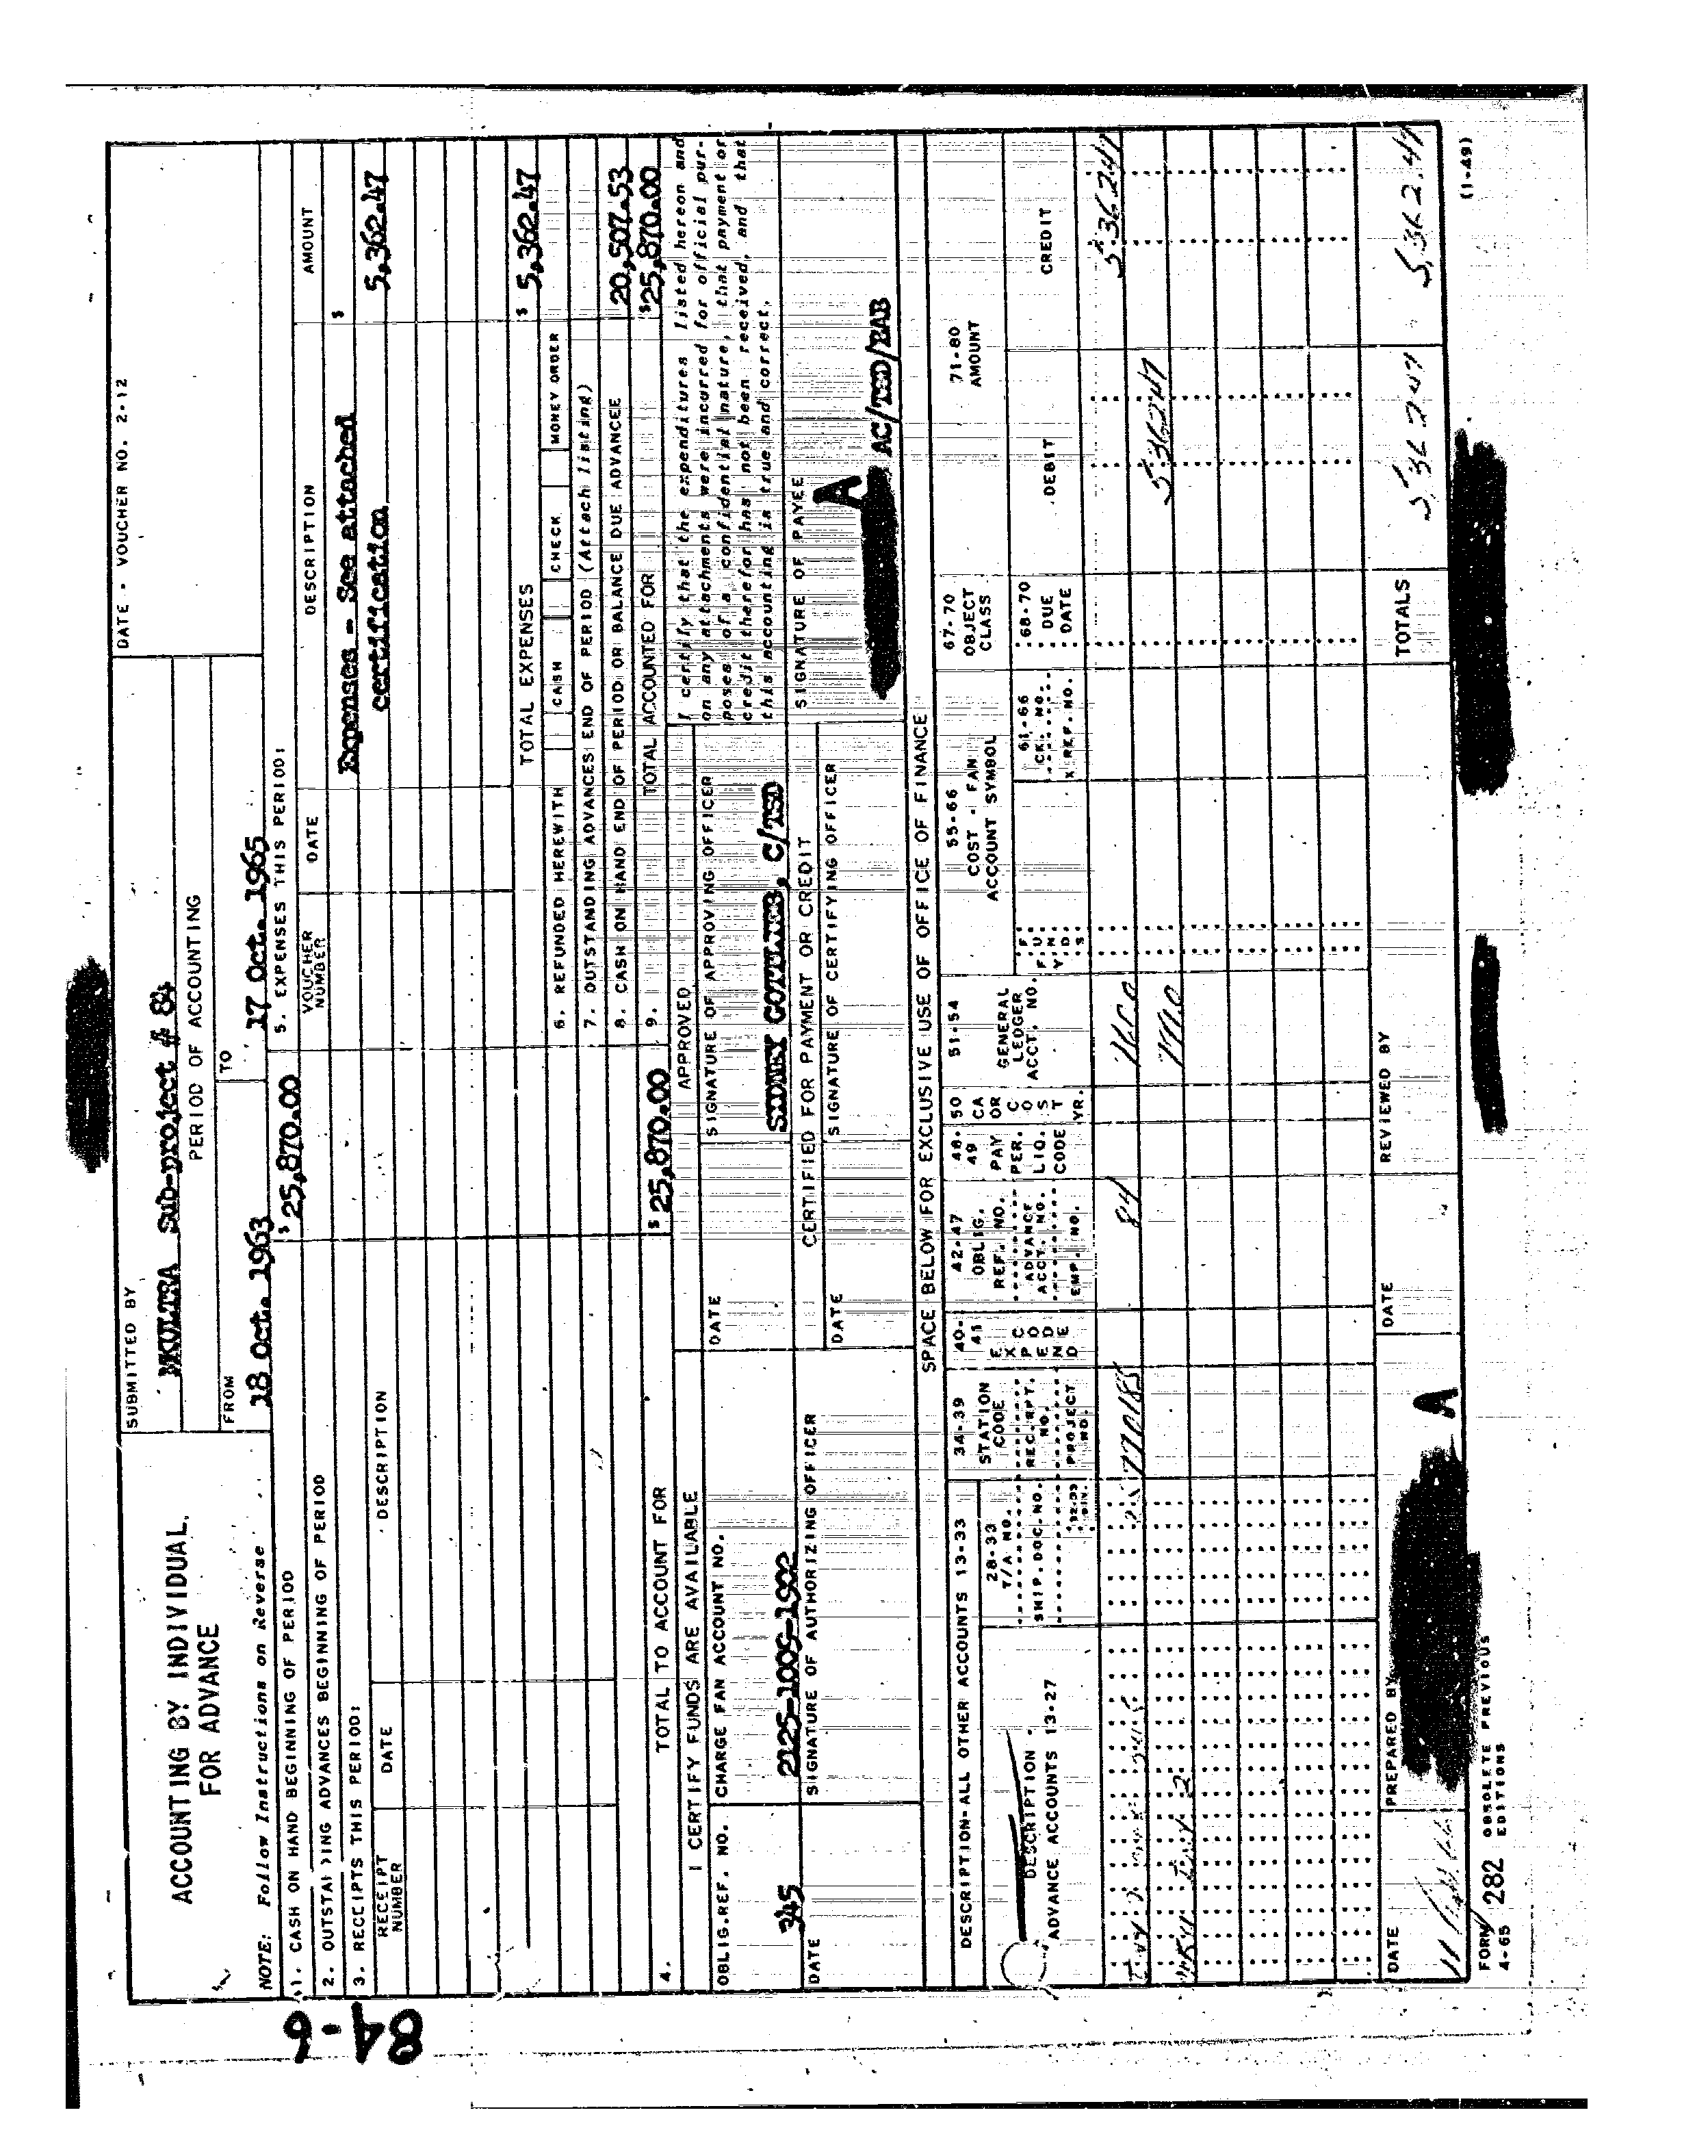 84-6
ACCOUNTING BY INDIVIDUAL
FOR ADVANCE
NOTE: Follow Instructions on Reverse
SUBMITTED BY
MKULTRA Sub-project # 84
PERIOD OF ACCOUNTING
FROM
18 Oct. 1963
TO
17 Oct. 1965
DATE - VOUCHER NO. 2-12
1. CASH ON HAND BEGINNING OF PERIOD
$ 25,870.00
2. OUTSTANDING ADVANCES BEGINNING OF PERIOD
3. RECEIPTS THIS PERIOD:
RECEIPT NUMBER
DATE
DESCRIPTION
5. EXPENSES THIS PERIOD:
VOUCHER NUMBER
DATE
DESCRIPTION
AMOUNT
Expenses - See attached
$
certification
5,362.47
TOTAL EXPENSES
$ 5,362.47
6. REFUNDED HEREWITH
CASH
CHECK
MONEY ORDER
7. OUTSTANDING ADVANCES END OF PERIOD (Attach listing)
8. CASH ON HAND END OF PERIOD OR BALANCE DUE ADVANCEE
20,507.53
4. TOTAL TO ACCOUNT FOR
$ 25,870.00
9. TOTAL ACCOUNTED FOR
$25,870.00
I CERTIFY FUNDS ARE AVAILABLE
OBLIG.REF. NO.
345
CHARGE FAN ACCOUNT NO.
2125-1009-1902
DATE
SIGNATURE OF AUTHORIZING OFFICER
APPROVED
DATE
SIGNATURE OF APPROVING OFFICER
SIDNEY GOTTLIEB, C/TSD
CERTIFIED FOR PAYMENT OR CREDIT
DATE
SIGNATURE OF CERTIFYING OFFICER
I certify that the expenditures listed hereon and
on any attachments were incurred for official pur-
poses of a confidential nature, that payment or
credit therefor has not been received, and that
this accounting is true and correct.
SIGNATURE OF PAYEE
A
AC/TSD/BAB
SPACE BELOW FOR EXCLUSIVE USE OF OFFICE OF FINANCE
DESCRIPTION-ALL OTHER ACCOUNTS 13-33
DESCRIPTION
ADVANCE ACCOUNTS 13-27
28-33
T/A NO.
SHIP.DOC.NO.
32-33
DIV.
34-39
STATION
CODE
REC.RPT.
NO.
PROJECT
NO.
40-
41
EXPEND
CODE
42-47
OBLIG.
REF. NO.
ADVANCE
ACCT. NO.
EMP. NO.
48-
49
PAY
PER.
LIQ.
CODE
50
CA
OR
COST
YR.
51-54
GENERAL
LEDGER
ACCT. NO.
55-66
COST - FAN
ACCOUNT SYMBOL
F.
F.U.
Y.N.
D.
S
61-66
CK. NO.
X REF. NO.
67-70
OBJECT
CLASS
68-70
DUE
DATE
71-80
AMOUNT
DEBIT
CREDIT
84
5362 47
5362 47
TOTALS
5,362 47
5,362.47
DATE
PREPARED BY
A
DATE
REVIEWED BY
FORM 282 OBSOLETE PREVIOUS
4-65 EDITIONS
(1-49)